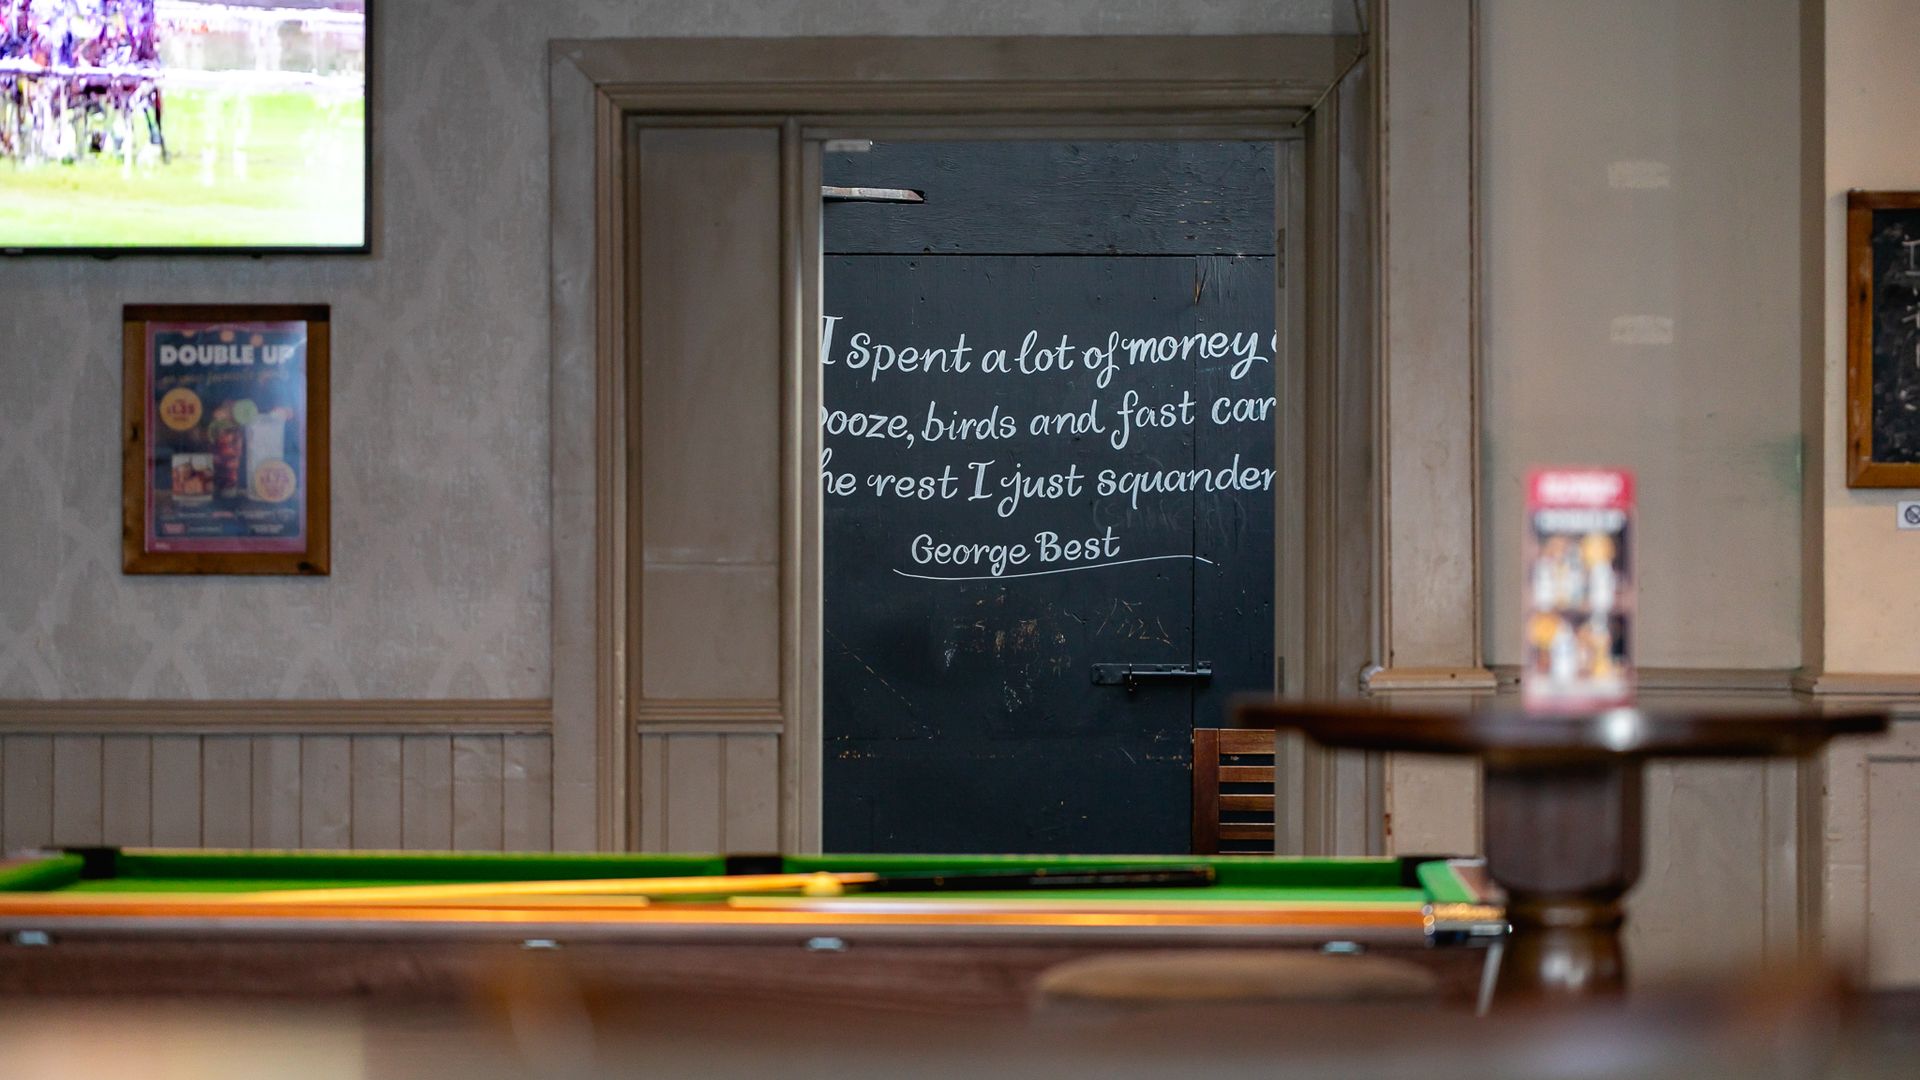 DOUBLE UP
I spent a lot of money
ooze, birds and fast car
he rest I just squander
George Best